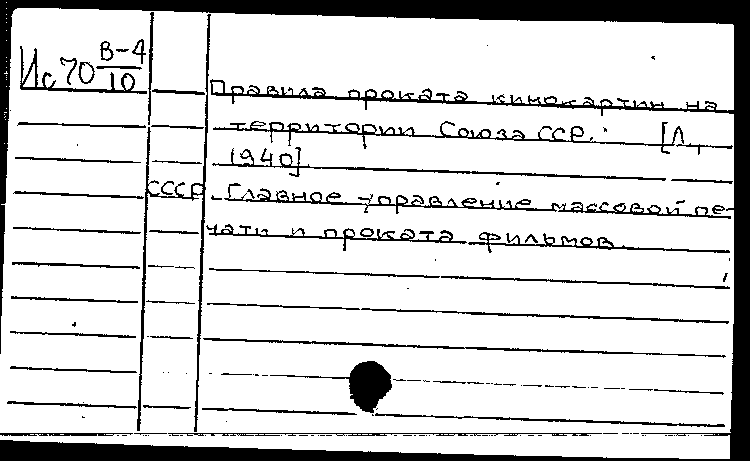 Ис 70 В-4/10
Правила проката кинокартин на
территории Союза ССР. [Л.,
1940].
СССР. Главное управление массовой пе-
чати и проката фильмов.